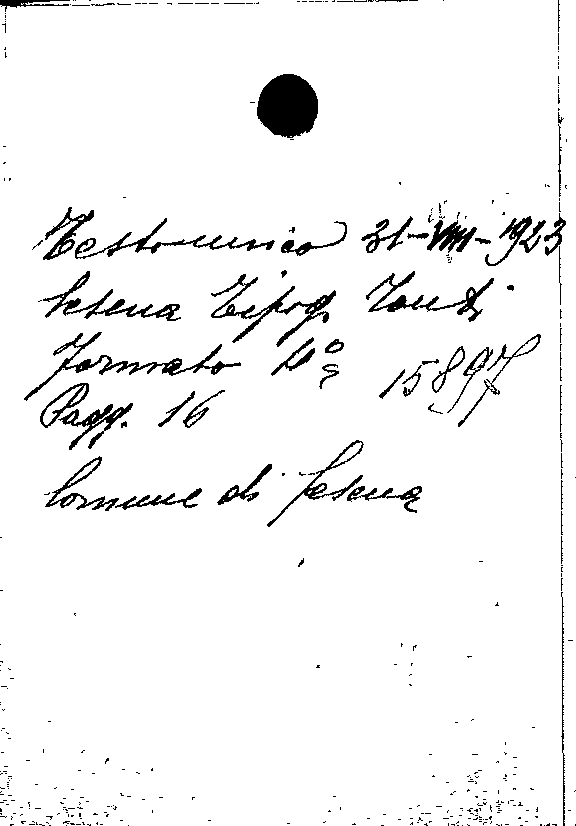 Testo unico 31-VIII-1923
Cesena Tipog. Tonti
Formato 4°
15897
Pagg. 16
Comune di Cesena